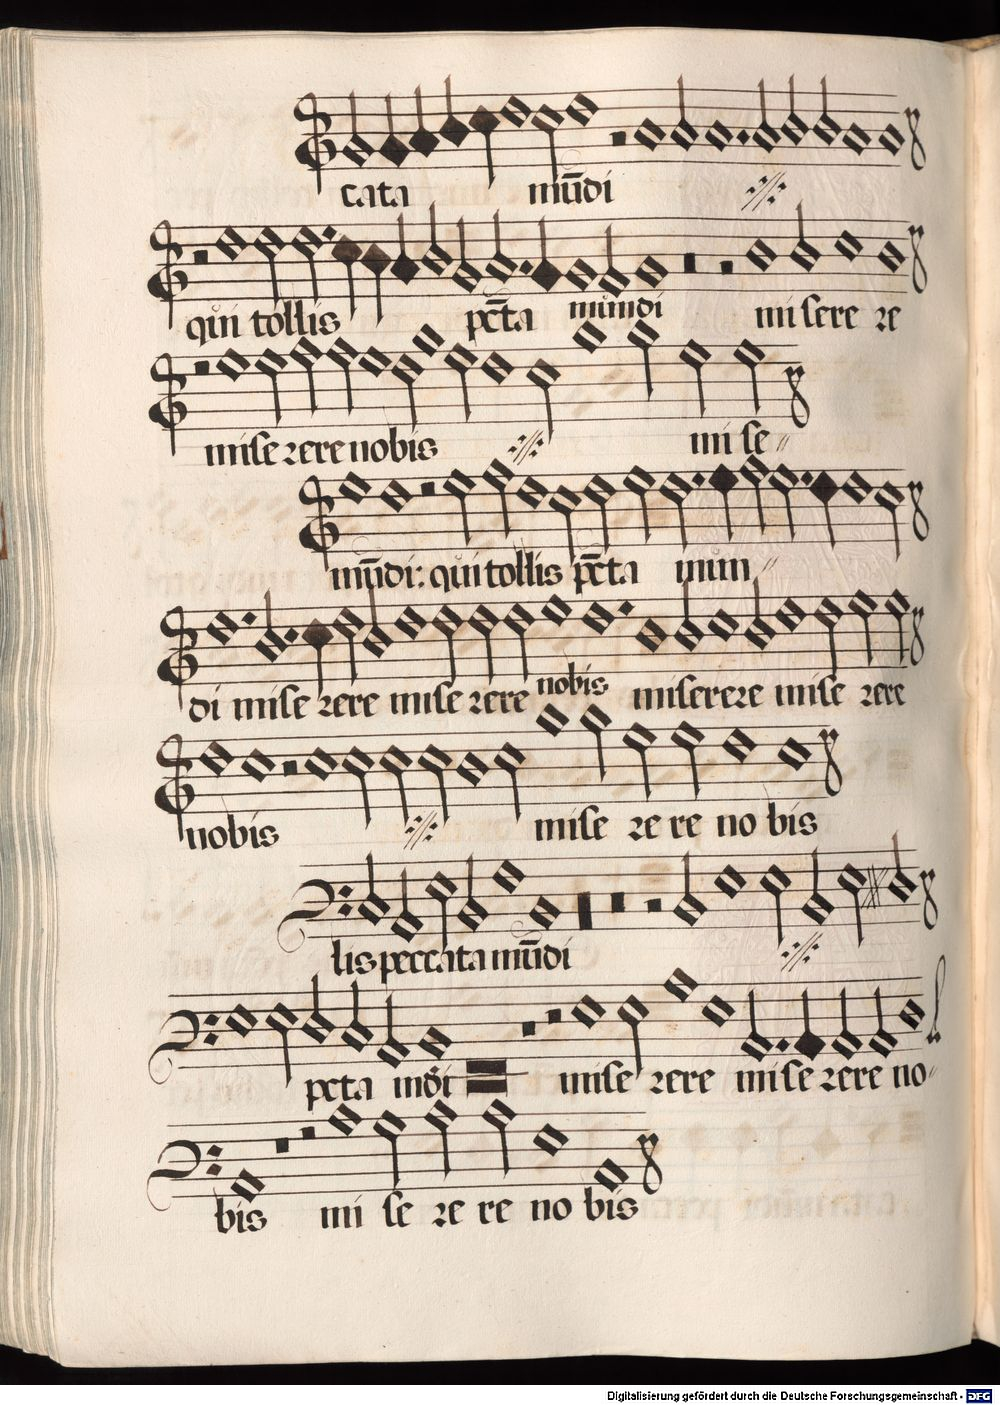 cata mūdi
qui tollis pc̄ta mundi mi sere re
mise rere nobis mi se
mūdi: qui tollis pc̄ta mun
di mise rere mise rere nobis miserere mise rere
nobis mise re re no bis
lis peccata mūdi
pcta mdi mise rere mise rere no
bis mi se re re no bis
Digitalisierung gefördert durch die Deutsche Forschungsgemeinschaft - DFG